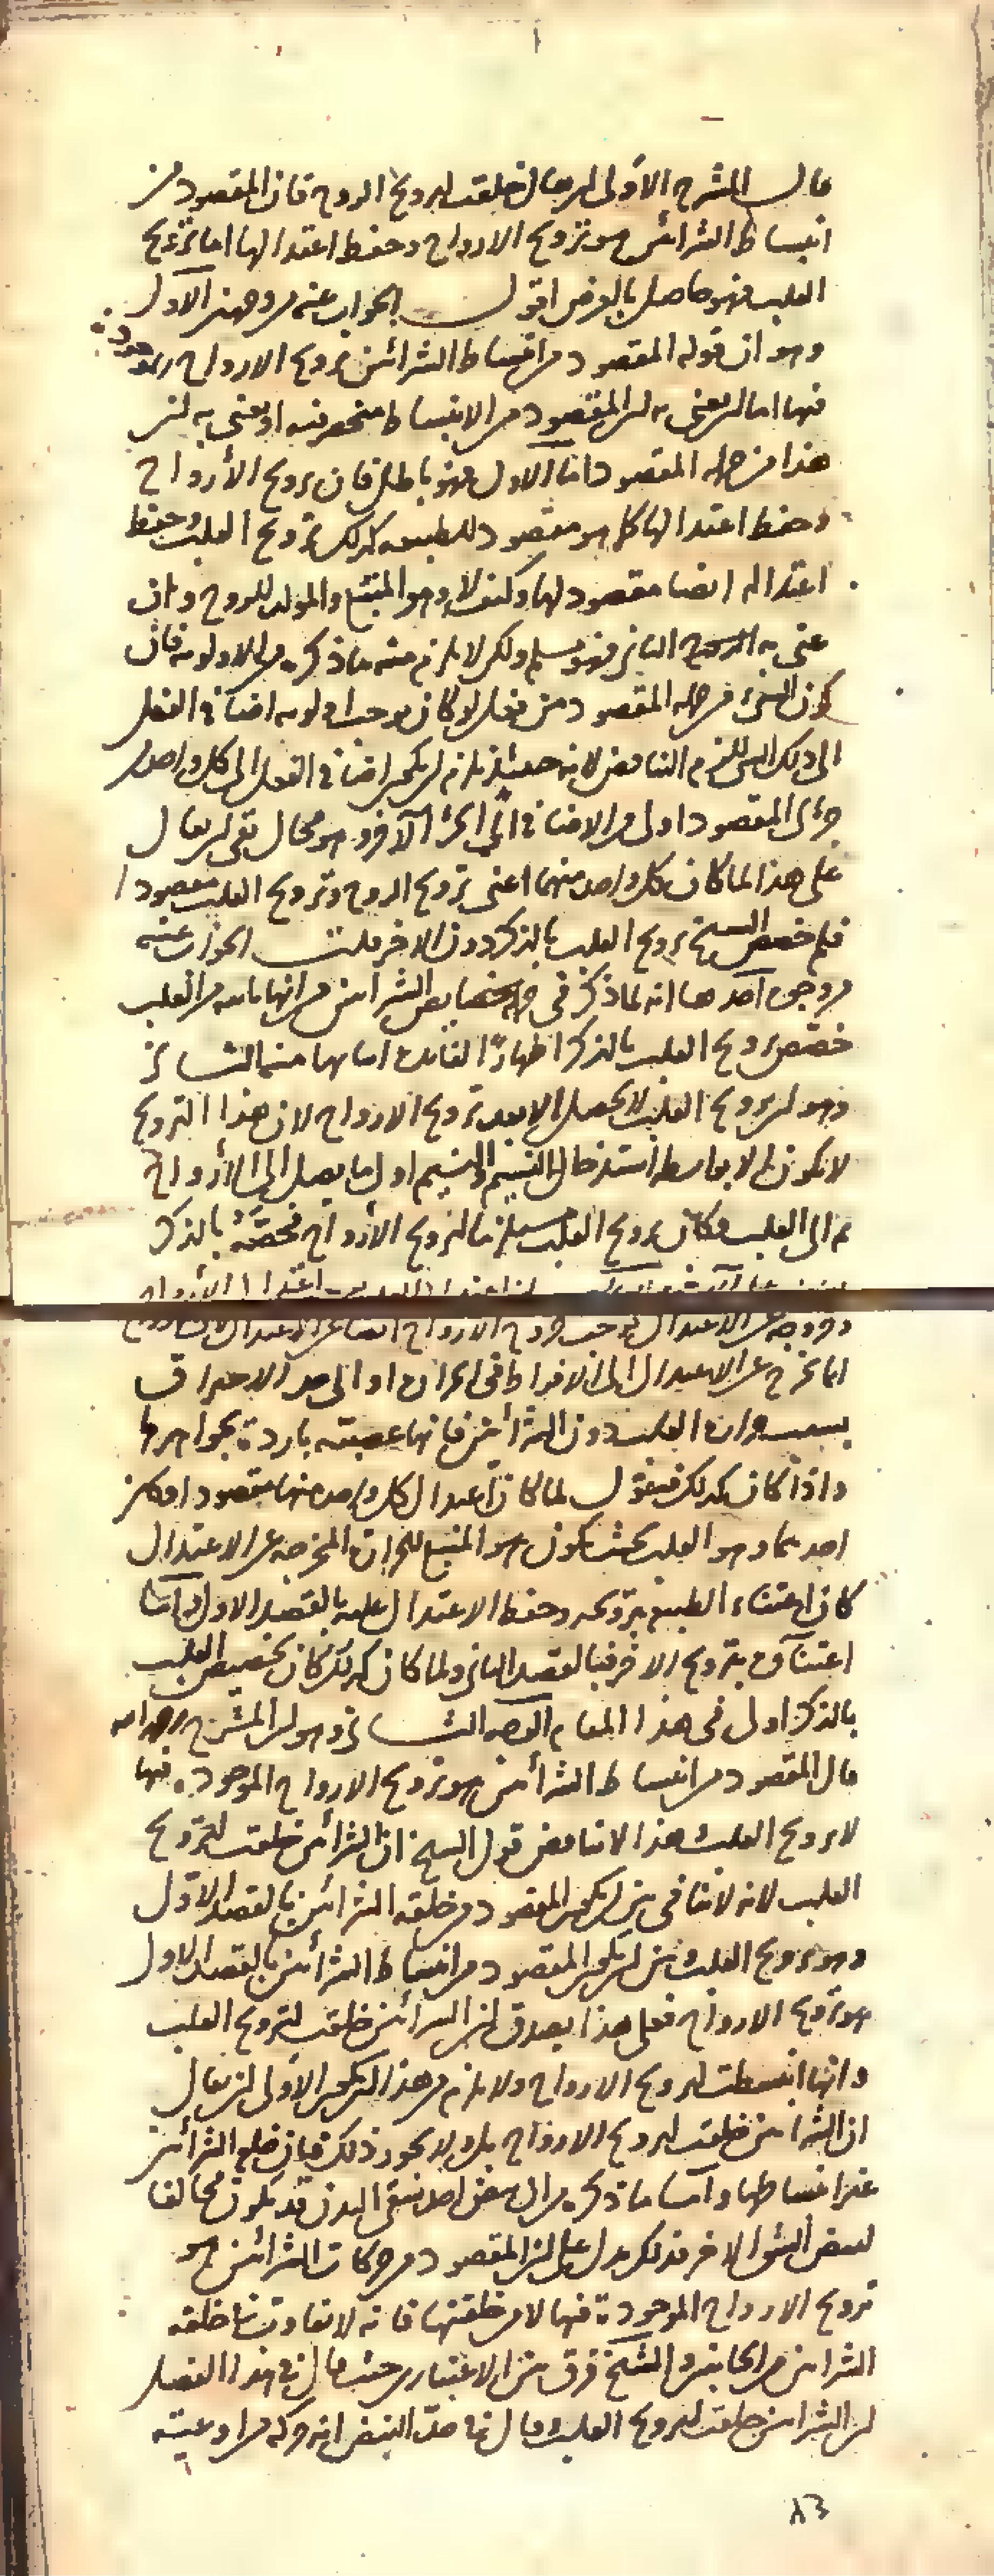 قال المشرح الاولى ان يقال خلقت لترويح الروح فان المقصود من
انبساط الشرائين هو ترويح الارواح وحفظ اعتدالها اما ترويح
القلب فهو حاصل بالعرض اقول الجواب عنه من وجهين الاول
وهو ان قوله المقصود من انبساط الشرائين ترويح الارواح الموجودة
فيها اما ان يعنى به ان المقصود من الانبساط منحصر فيه او يعنى به ان
هذا من جملة المقصود اما الاول فهو باطل فان ترويح الأرواح
وحفظ اعتدالها كما هو مقصود للطبيعه كذلك ترويح القلب وحفظ
اعتداله ايضا مقصود لها وكيف لا وهو المنبع والمولد للروح وان
عنى به الثانى فهو مسلم ولكن لا يلزم منه ما ذكره من الاولويه فان
كون الشئ من جملة المقصود من فعل لو كان يوجب اولويه اضافة الفعل
الى ذلك الشئ للزم التناقض لانه حينئذ يلزم ان يكون اضافة الفعل الى كل واحد من
جزئى المقصود اولى من الاضافة الى الجزء الآخر وهو محال بقى ان يقال
على هذا لما كان كل واحد منهما اعنى ترويح الروح وترويح القلب مقصودا
فلم خصص الشيخ ترويح القلب بالذكر دون الاخر قلت الجواب عنه
من وجوه احدها انه لما ذكر فى خصايص الشرائين من انها نابته من القلب
خصّص ترويح القلب بالذكر اظهارًا لفائدة اتصالها منه الثانى
وهو ان ترويح القلب لا يحصل الا بعد ترويح الارواح لان هذا الترويح
لا يكون الا بواسطة استدخال النسيم والنسيم اول ما يصل الى الأرواح
ثم الى القلب فكان ترويح القلب مستلزما لترويح الأرواح فخصّه بالذكر
وخروجه عن الاعتدال يوجب خروج الارواح ايضا عن الاعتدال لان الروح
انما يخرج عن الاعتدال الى الافراط فى الحرارة او الى حد الاحتراق
بسبب حرارة القلب دون الشرائين فانها عصبيّه باردة بجواهرها
واذا كان كذلك فنقول لما كان اعتدال كل واحد منهما مقصودا ولكن
احدهما وهو القلب بحيث يكون هو المنبع للحرارة المخرجه عن الاعتدال
كان اعتناء الطبيعة بترويحه وحفظ الاعتدال عليه بالقصد الاول واما
اعتناؤه بترويح الاخر فبالقصد الثانى ولما كان كذلك كان تخصيص القلب
بالذكر اولى فى هذا المقام الوجه الثانى وهو ان المشرح رحمه الله
قال المقصود من انبساط الشرائين هو ترويح الارواح الموجودة فيها
لا ترويح القلب وهذا لا يناقض قول الشيخ ان الشرائين خلقت لترويح
القلب لانه لا تنافى بين ان يكون المقصود من خلقة الشرائين بالقصد الاول
وهو ترويح القلب وبين ان يكون المقصود من انبساط الشرائين بالقصد الاول
هو ترويح الارواح فعلى هذا يصدق ان الشرائين خلقت لترويح القلب
وانها انبسطت لترويح الارواح ولا يلزم من هذا ان يكون الاولى ان يقال
ان الشرائين خلقت لترويح الارواح بل ولا يجوز ذلك فان خلقة الشرائين
غير انبساطها واما ما ذكره من ان نبض احد شقى البدن قد يكون مخالفا
لنبض الشق الاخر فذلك يدل على ان المقصود من حركات الشرائين هو
ترويح الارواح الموجودة فيها لا من خلقتها فانه لا تفاوت فى خلقة
الشرائين من الجانبين والشيخ فرق بين الاعتبارين حيث قال فى هذا الفصل
ان الشرائين خلقت لترويح القلب وقال فى حدّ النبض انه حركه من اوعيته
٨٣